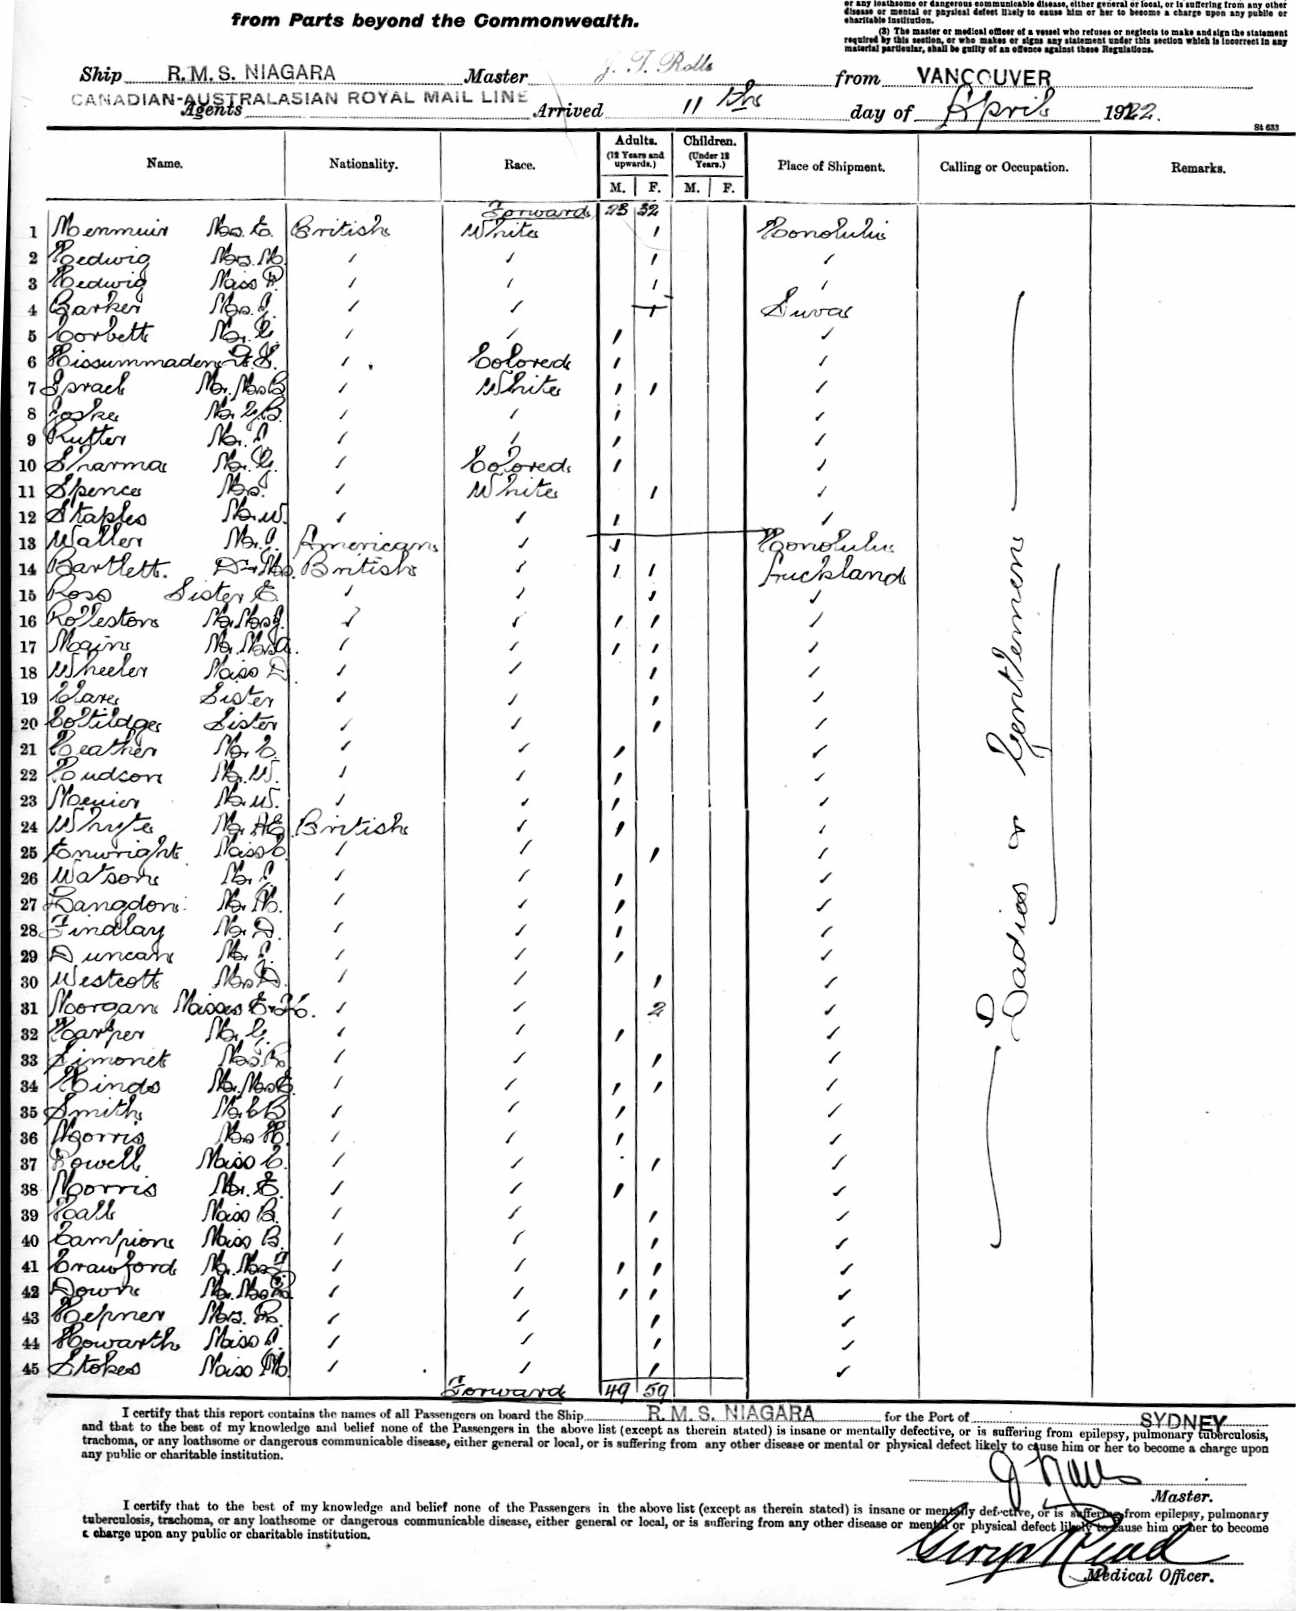 or any loathsome or dangerous communicable disease, either general or local, or is suffering from any other
disease or mental or physical defect likely to cause him or her to become a charge upon any public or
charitable institution.
(3) The master or medical officer of a vessel who refuses or neglects to make and sign the statement
required by this section, or who makes or signs any statement under this section which is incorrect in any
material particular, shall be guilty of an offence against these Regulations.
from Parts beyond the Commonwealth.
Ship R.M.S. NIAGARA Master J. T. Rolls from VANCOUVER
CANADIAN-AUSTRALASIAN ROYAL MAIL LINE
Agents Arrived 11 ths day of April 1922.
St 633
Name. Nationality. Race. Adults. (12 Years and upwards.) M. F. Children. (Under 12 Years.) M. F. Place of Shipment. Calling or Occupation. Remarks.
Forward 23 32
1 Menmuir Mrs. E. British White 1 Honolulu
2 Hedwig Mrs. M. ✓ ✓ 1 ✓
3 Hedwig Miss ✓ ✓ 1 ✓
4 Barker ✓ ✓ 1 Suva
5 Corbett Mr. G. ✓ ✓ 1 ✓
6 Hissummaden ✓ Colored 1 ✓
7 Israel Mr. Mrs B ✓ White 1 1 ✓
8 Joske Mr. G.B. ✓ ✓ 1 ✓
9 Mr. ✓ ✓ 1 ✓
10 Sharma Mr. G. ✓ Colored 1 ✓
11 Spence ✓ White 1 ✓
12 Staples Mr. W. ✓ ✓ 1 ✓
13 Waller Mr. J. American ✓ 1 Honolulu
14 Bartlett. Dr. Mrs. British ✓ 1 1 Auckland
15 Ross Sister E. ✓ ✓ 1 ✓
16 Rolleston Mr. Mrs J. ✓ ✓ 1 1 ✓
17 Mr. Mrs. ✓ ✓ 1 1 ✓
18 Wheeler Miss D. ✓ ✓ 1 ✓
19 Clare Sister ✓ ✓ 1 ✓
20 Sister ✓ ✓ 1 ✓
21 Heather Mr. C. ✓ ✓ 1 ✓
22 Hudson Mr. W. ✓ ✓ 1 ✓
23 Mr. W. ✓ ✓ 1 ✓
24 Whyte Mr. British ✓ 1 ✓
25 Enwright Miss C. ✓ ✓ 1 ✓
26 Watson Mr. J. ✓ ✓ 1 ✓
27 Langdon Mr. ✓ ✓ 1 ✓
28 Findlay Mr. D. ✓ ✓ 1 ✓
29 Duncan Mr. J. ✓ ✓ 1 ✓
30 Westcott Mrs D. ✓ ✓ 1 ✓
31 Morgan Misses E & K. ✓ ✓ 2 ✓
32 Harper Mr. G. ✓ ✓ 1 ✓
33 Simonet ✓ ✓ 1 ✓
34 Hinds Mr. Mrs E. ✓ ✓ 1 1 ✓
35 Smith Mr. C B ✓ ✓ 1 ✓
36 Morris H. ✓ ✓ 1 ✓
37 Powell Miss C. ✓ ✓ 1 ✓
38 Morris Mr. E. ✓ ✓ 1 ✓
39 Hall Miss B. ✓ ✓ 1 ✓
40 Campion Miss B. ✓ ✓ 1 ✓
41 Crawford Mr. Mrs ✓ ✓ 1 1 ✓
42 Down Mr. Mrs ✓ ✓ 1 1 ✓
43 Hepner Mrs. R. ✓ ✓ 1 ✓
44 Howarth Miss ✓ ✓ 1 ✓
45 Stokes Miss M. ✓ ✓ 1 ✓
Ladies or Gentlemen
Forward 49 59
I certify that this report contains the names of all Passengers on board the Ship R. M. S. NIAGARA for the Port of SYDNEY
and that to the best of my knowledge and belief none of the Passengers in the above list (except as therein stated) is insane or mentally defective, or is suffering from epilepsy, pulmonary tuberculosis,
trachoma, or any loathsome or dangerous communicable disease, either general or local, or is suffering from any other disease or mental or physical defect likely to cause him or her to become a charge upon
any public or charitable institution.
J Rolls
Master.
I certify that to the best of my knowledge and belief none of the Passengers in the above list (except as therein stated) is insane or mentally defective, or is suffering from epilepsy, pulmonary
tuberculosis, trachoma, or any loathsome or dangerous communicable disease, either general or local, or is suffering from any other disease or mental or physical defect likely to cause him or her to become
a charge upon any public or charitable institution.
Medical Officer.